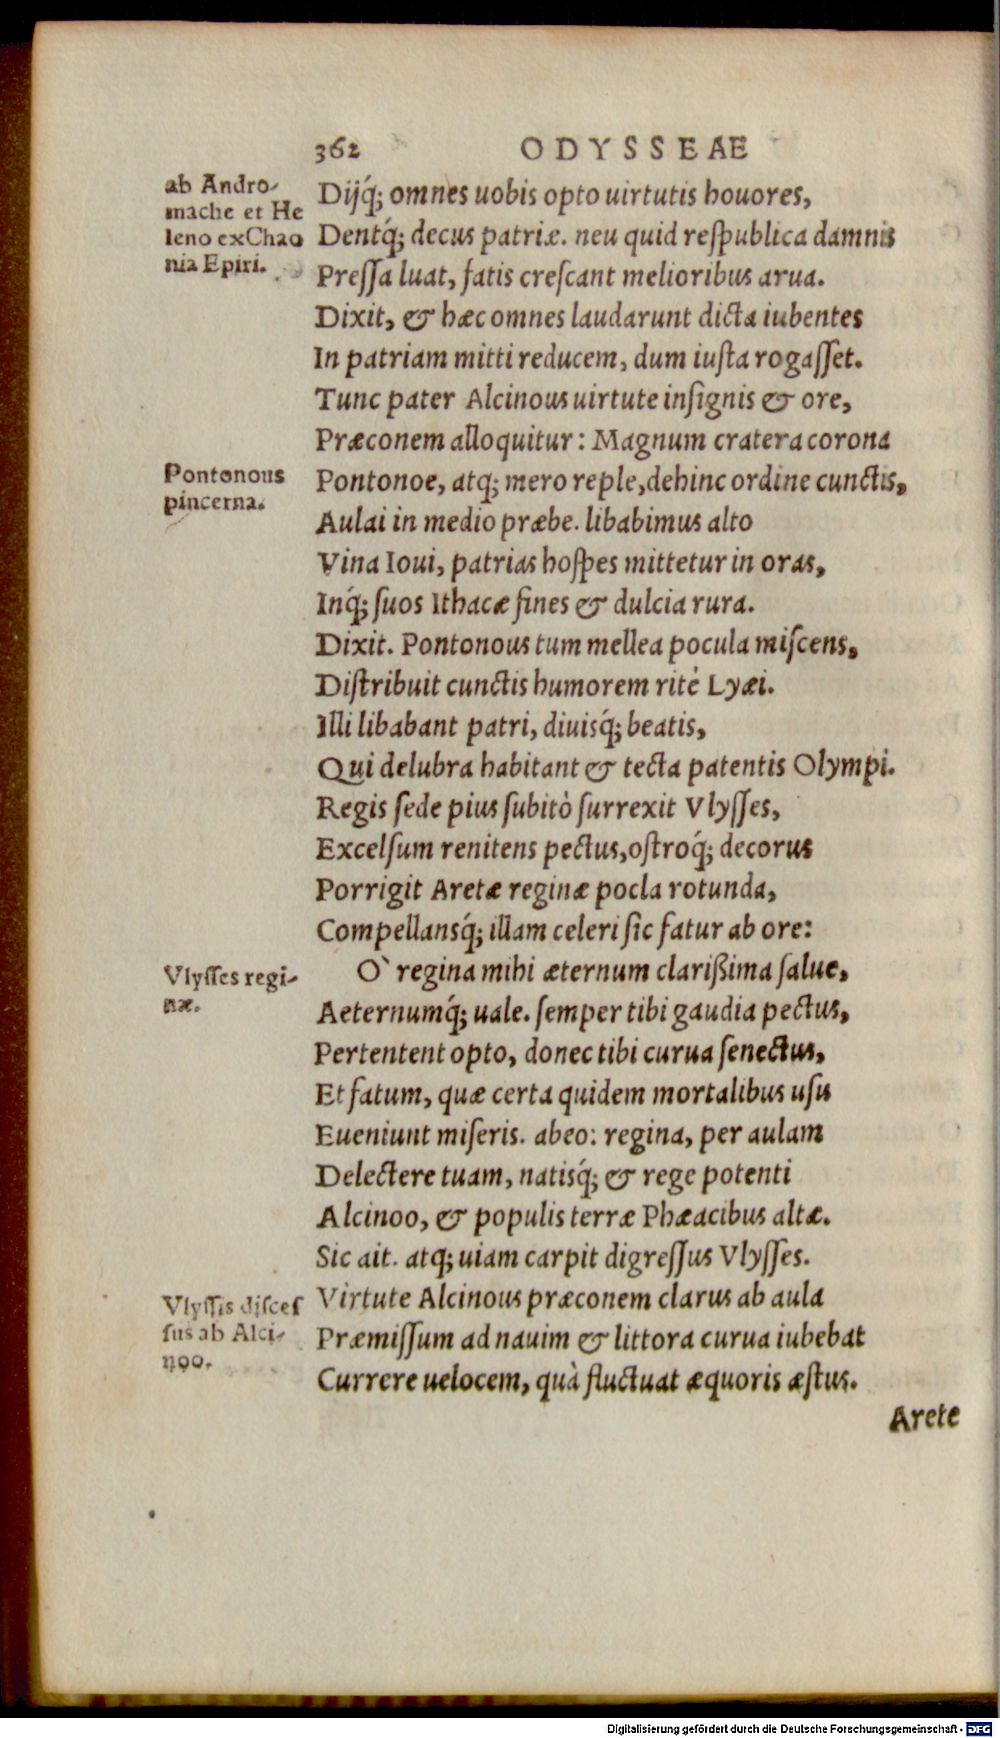 362 ODYSSEAE
ab Andro-
mache et He
leno ex Chao
nia Epiri.
Dijq́; omnes uobis opto uirtutis houores,
Dentq́; decus patriæ. neu quid reſpublica damnis
Preſſa luat, fatis creſcant melioribus arua.
Dixit, & hæc omnes laudarunt dicta iubentes
In patriam mitti reducem, dum iuſta rogaſſet.
Tunc pater Alcinous uirtute inſignis & ore,
Præconem alloquitur: Magnum cratera corona
Pontonous
pincerna.
Pontonoe, atq; mero reple, dehinc ordine cunctis,
Aulai in medio præbe. libabimus alto
Vina Ioui, patrias hoſpes mittetur in oras,
Inq́; ſuos Ithacæ fines & dulcia rura.
Dixit. Pontonous tum mellea pocula miſcens,
Diſtribuit cunctis humorem ritè Lyæi.
Illi libabant patri, diuisq́; beatis,
Qui delubra habitant & tecta patentis Olympi.
Regis ſede pius ſubitò ſurrexit Vlyſſes,
Excelſum renitens pectus, oſtroq́; decorus
Porrigit Aretæ reginæ pocla rotunda,
Compellansq́; illam celeri ſic fatur ab ore:
Vlyſſes regi-
næ.
O` regina mihi æternum clarißima ſalue,
Aeternumq́; uale. ſemper tibi gaudia pectus,
Pertentent opto, donec tibi curua ſenectus,
Et fatum, quæ certa quidem mortalibus uſu
Eueniunt miſeris. abeo: regina, per aulam
Delectere tuam, natisq́; & rege potenti
Alcinoo, & populis terræ Phæacibus altæ.
Sic ait. atq; uiam carpit digreſſus Vlyſſes.
Vlyſſis diſceſ
ſus ab Alci-
noo.
Virtute Alcinous præconem clarus ab aula
Præmiſſum ad nauim & littora curua iubebat
Currere uelocem, quà fluctuat æquoris æſtus.
Arete
Digitalisierung gefördert durch die Deutsche Forschungsgemeinschaft - DFG